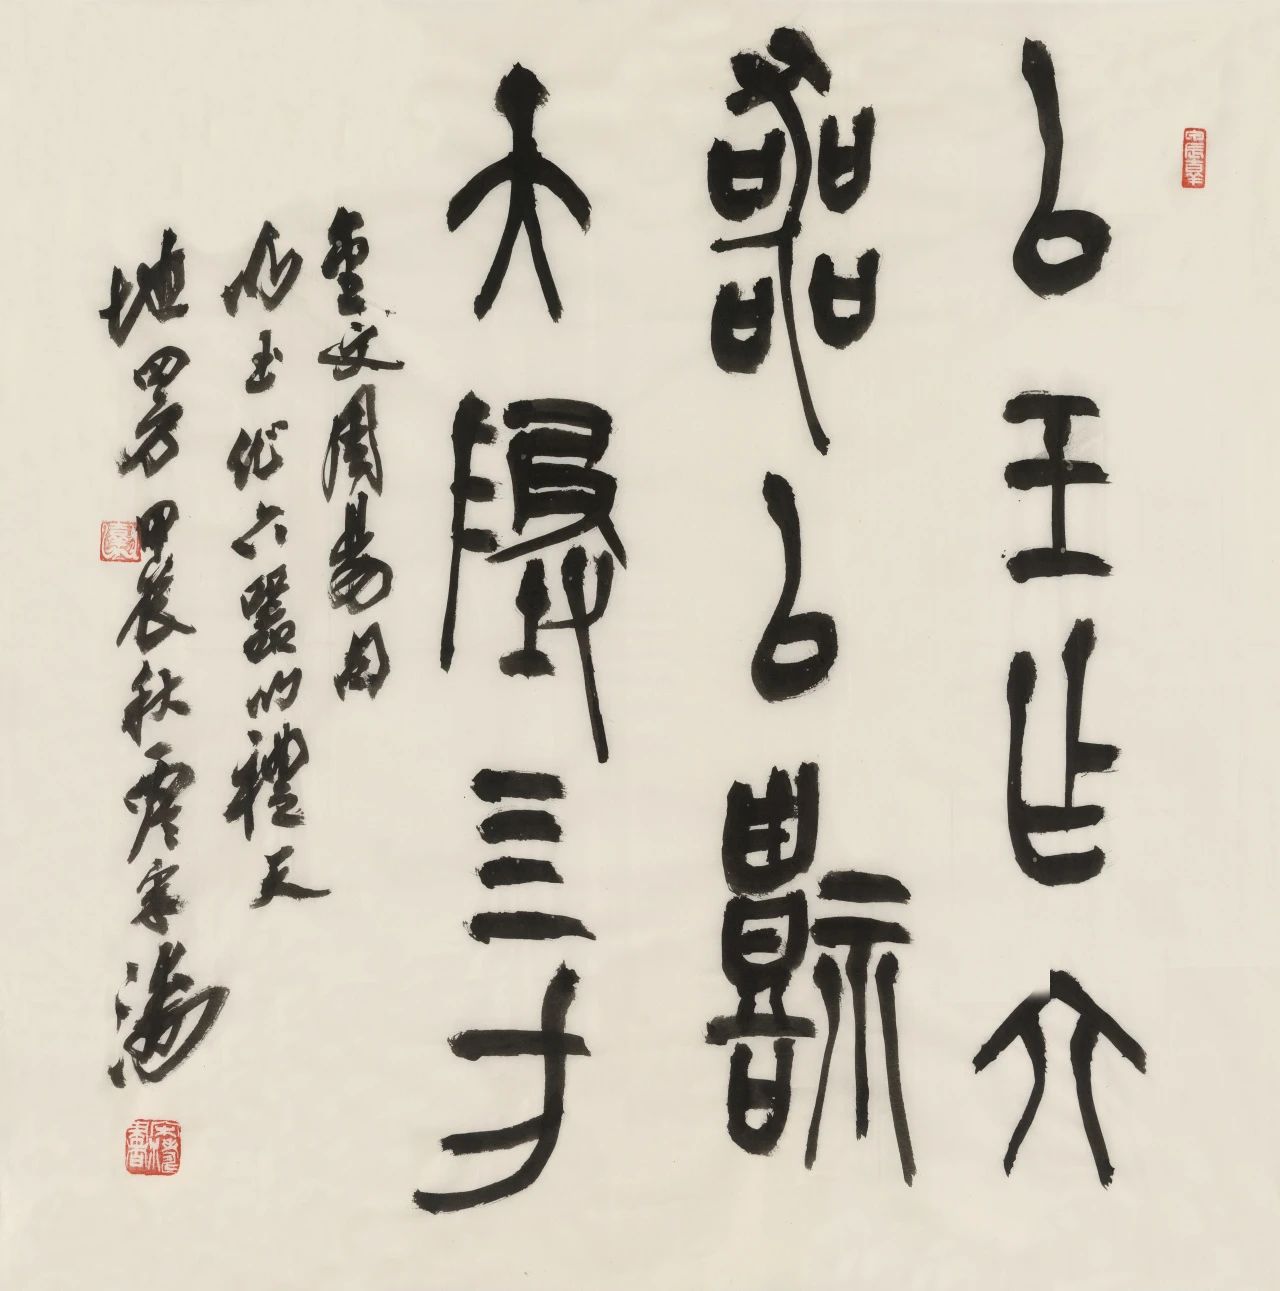 以玉作六
器以禮
天地四方
金文周易句
以玉作六器以禮天
地四方甲辰秋雲宋濤